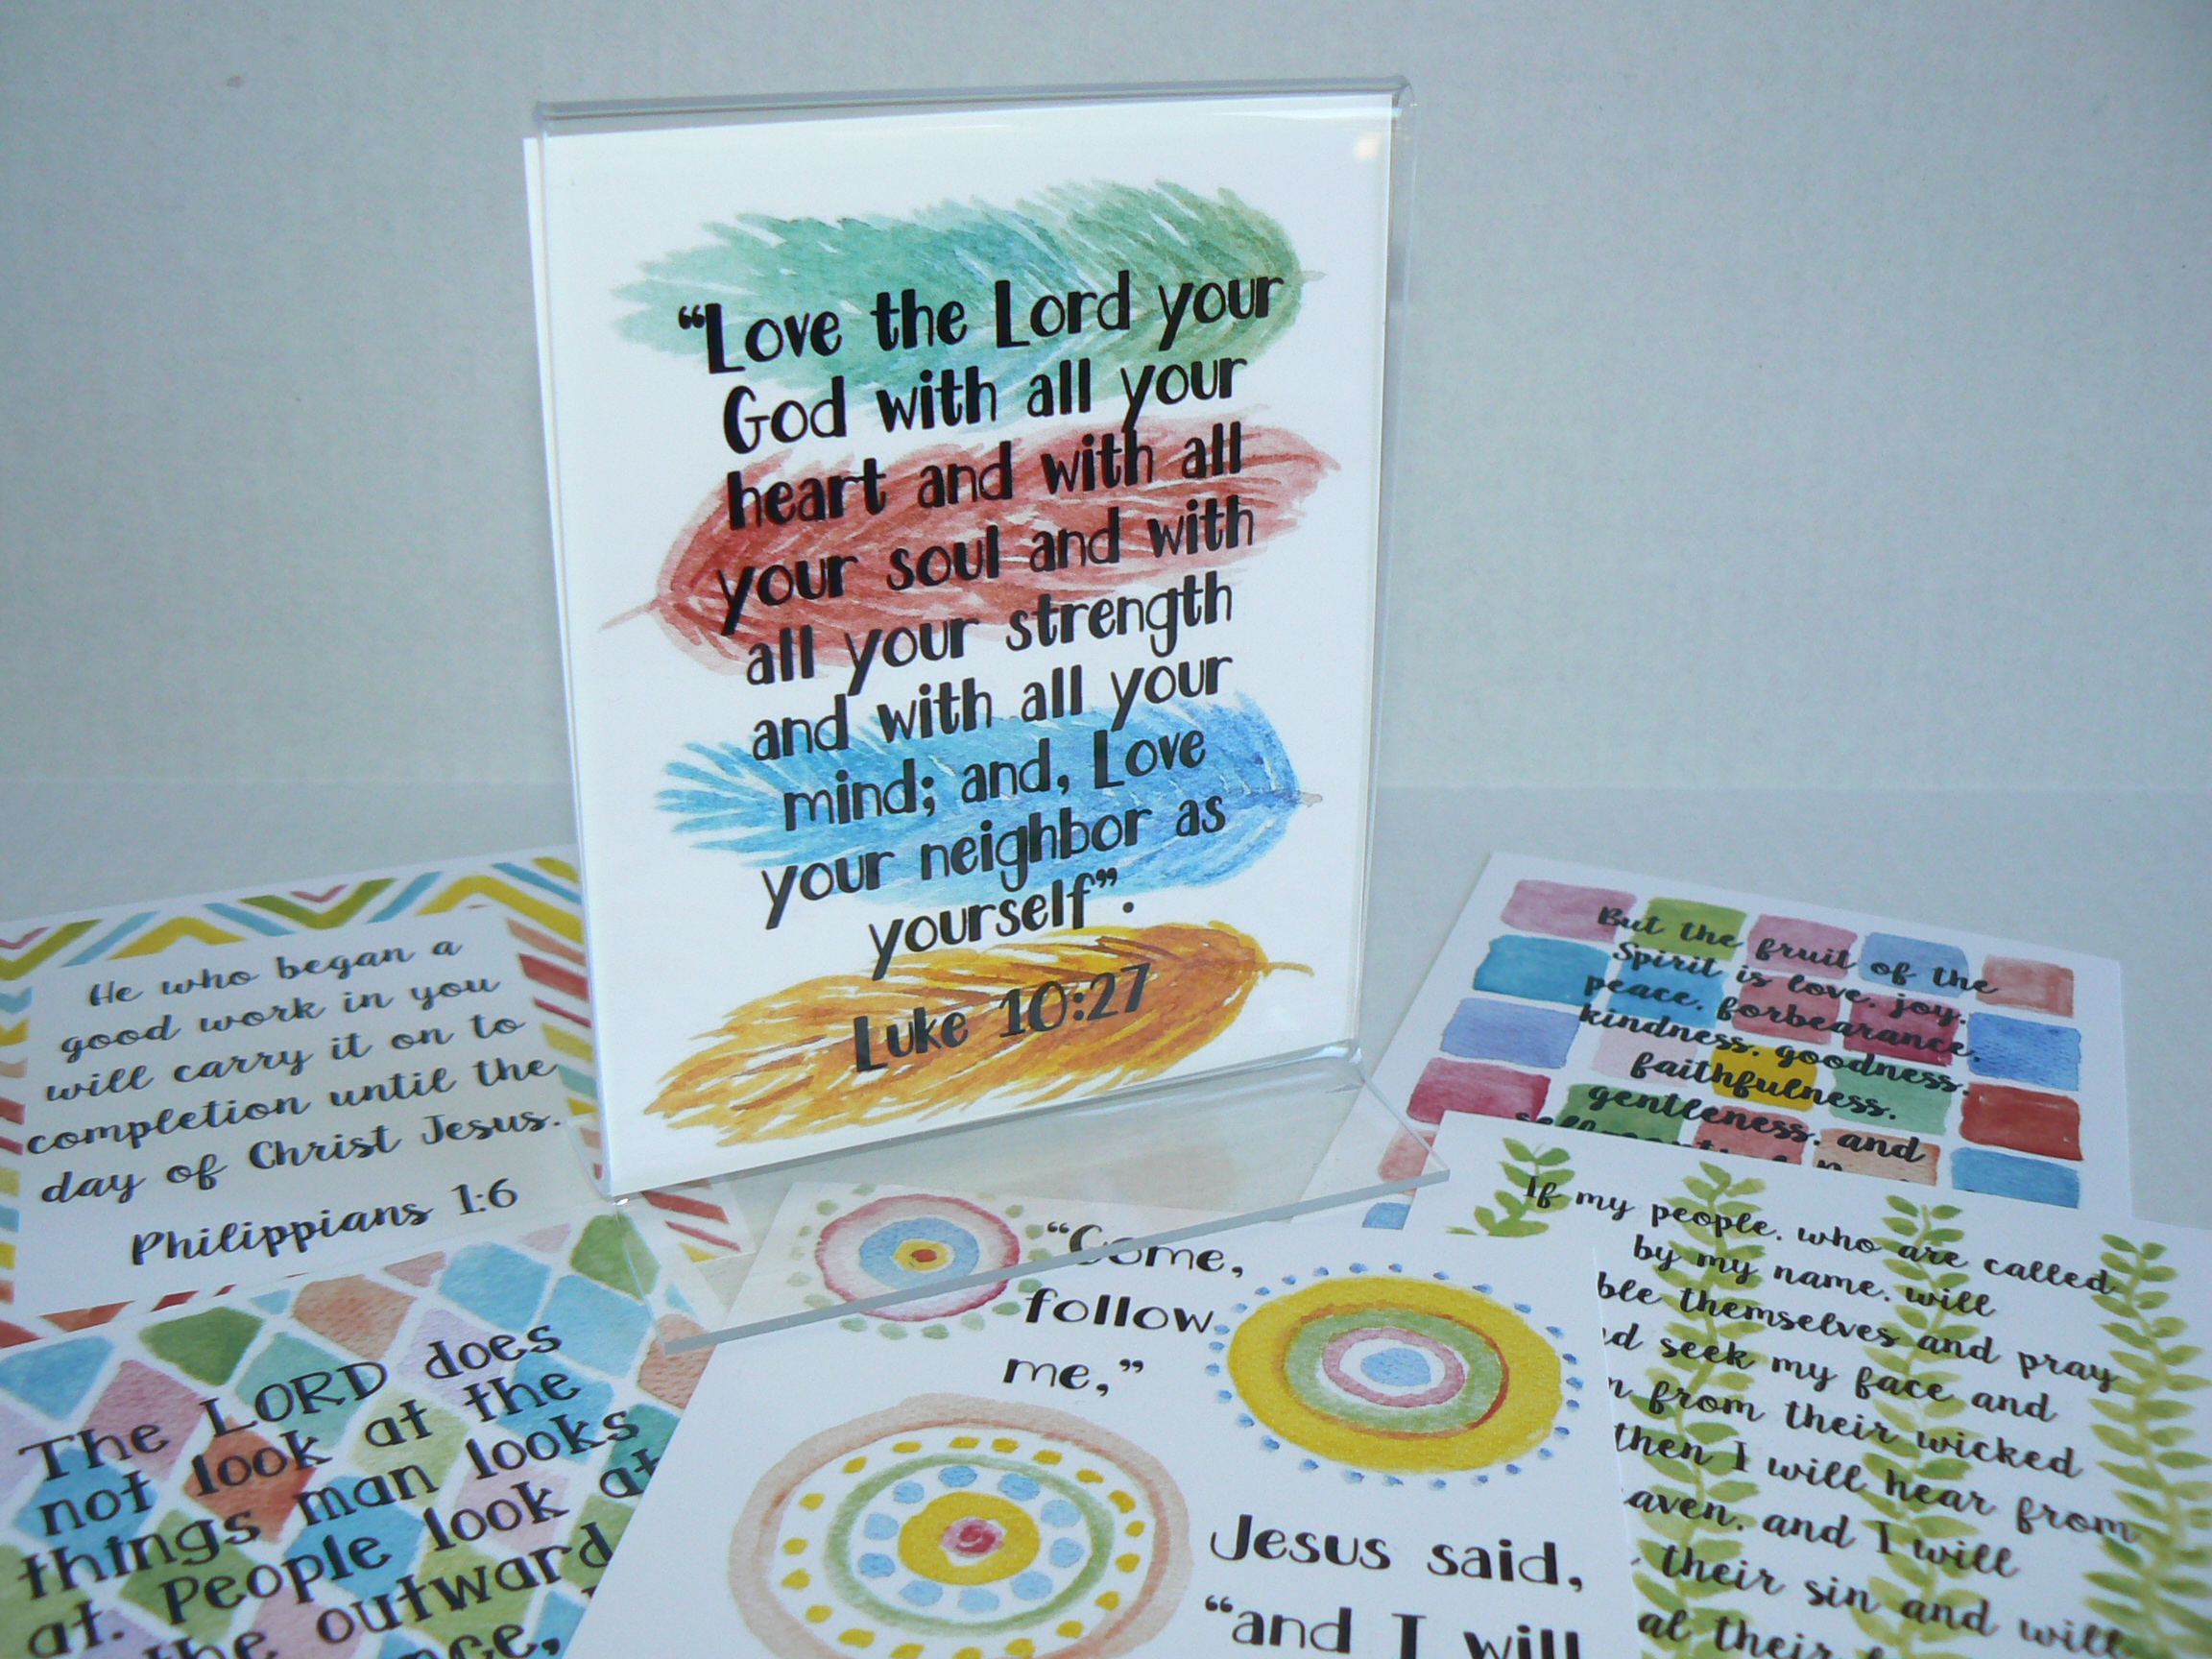 “Love the Lord your
God with all your
heart and with all
your soul and with
all your strength
and with all your
mind; and, Love
your neighbor as
yourself”.
Luke 10:27
He who began a
good work in you
will carry it on to
completion until the
day of Christ Jesus.
Philippians 1:6
The LORD does
not look at the
things man looks
at. People look at
the outward
“Come,
follow
me,”
Jesus said,
“and I will
But the fruit of the
Spirit is love, joy,
peace, forbearance,
kindness, goodness,
faithfulness,
gentleness, and
If my people, who are called
by my name, will
themselves and pray
seek my face and
from their wicked
then I will hear from
and I will
their sin and will
their